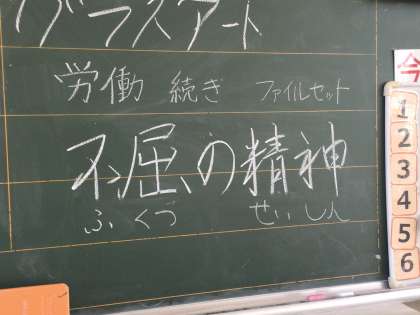 グラスアート
労働 続き ファイルセット
不屈の精神
ふくつ せいしん
今
1
2
3
4
5
6